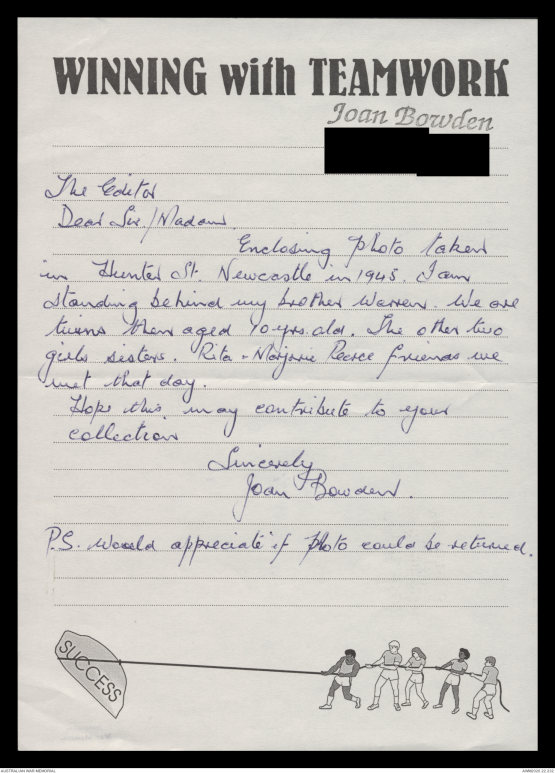 WINNING with TEAMWORK
Joan Bowden
The Editor
Dear Sir/Madam
Enclosing photo taken
in Hunter St. Newcastle in 1945. I am
standing behind my brother Warren. We are
twins then aged 10 yrs. old. The other two
girls sisters. Rita - Marjorie Pearce friends we
met that day.
Hope this may contribute to your
collection
Sincerely
Joan Bowden.
P.S. would appreciate if photo could be returned.
SUCCESS
AUSTRALIAN WAR MEMORIAL